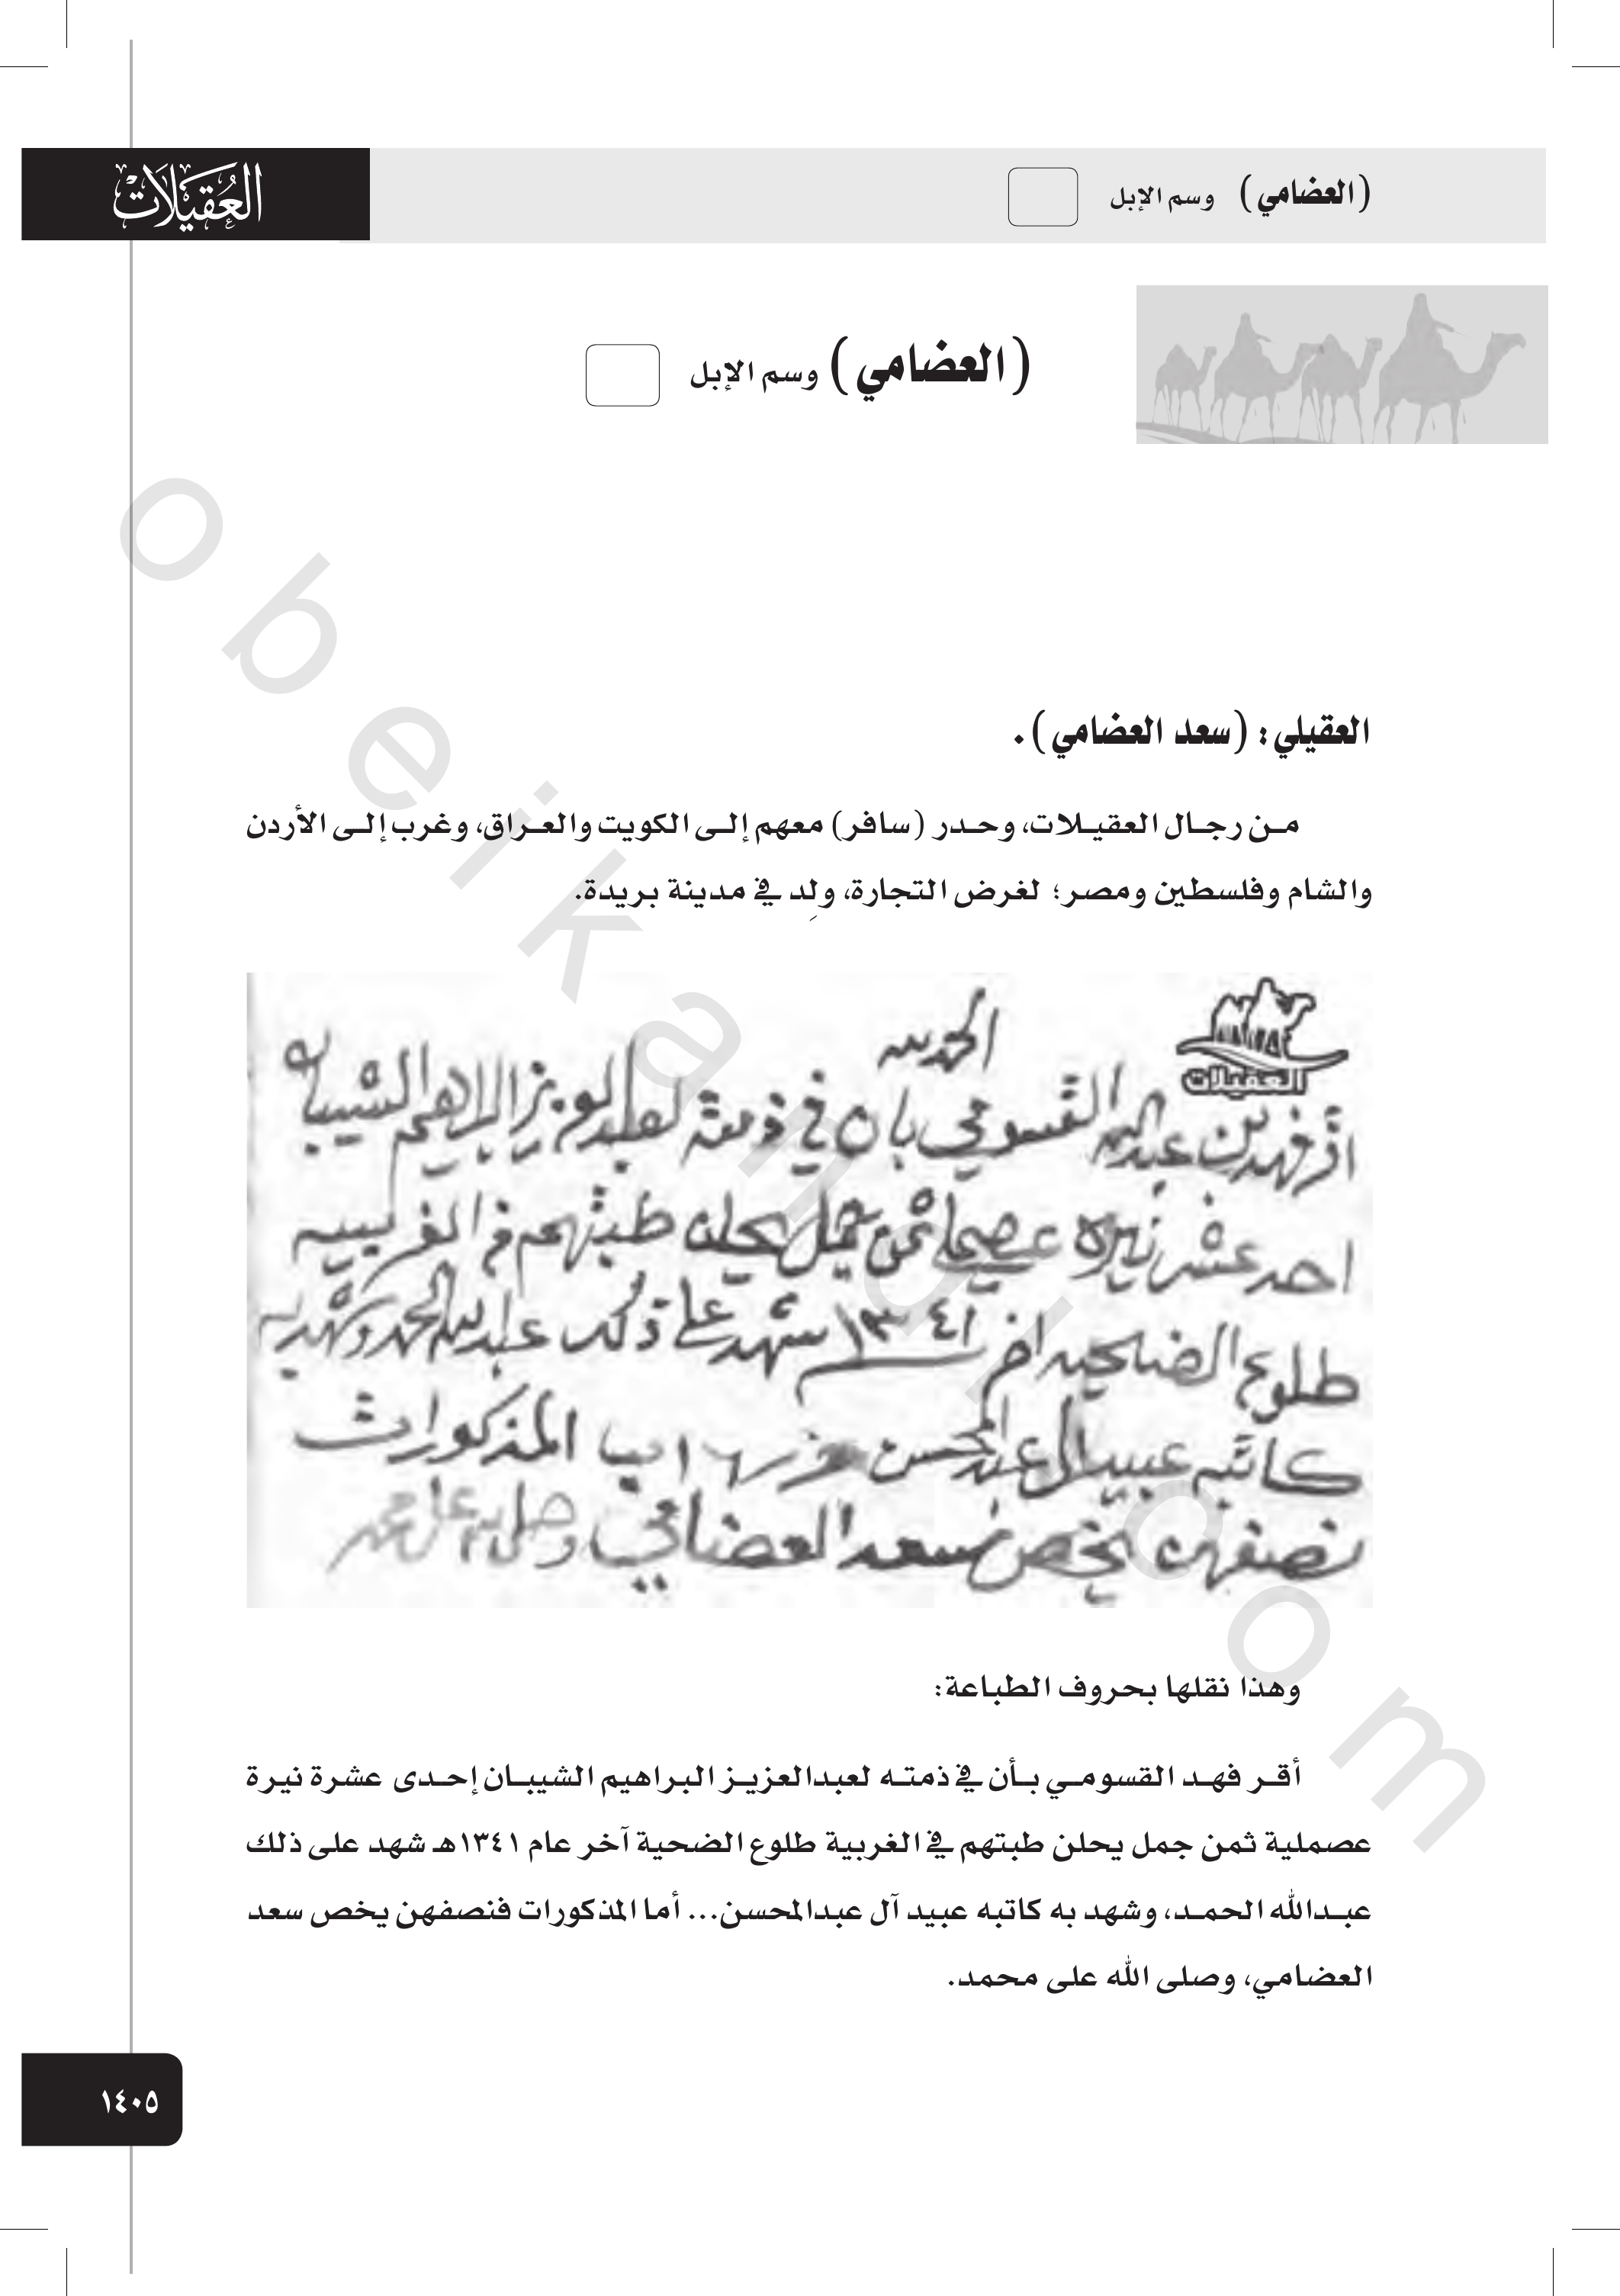 (العضامي) وسم الإبل
العقيلات
(العضامي) وسم الإبل
العقيلي: (سعد العضامي).
من رجال العقيلات، وحدر (سافر) معهم إلى الكويت والعراق، وغرب إلى الأردن
والشام وفلسطين ومصر؛ لغرض التجارة، ولِد في مدينة بريدة.
الحمد لله
العقيلات
اقر فهد بن عبدالله القسومي بان في ذمته لعبدالعزيز البراهيم الشيبان
احد عشر نيره عصمليه ثمن جمل يحلن طبتهم في الغربيه
طلوع الضحيه اخر ١٣٤١ شهد على ذلك عبدالله الحمد وشهد به
كاتبه عبيد ال عبدالمحسن المذكورات
نصفهن يخص سعد العضامي وصلى الله على محمد
وهذا نقلها بحروف الطباعة:
أقر فهد القسومي بأن في ذمته لعبدالعزيز البراهيم الشيبان إحدى عشرة نيرة
عصملية ثمن جمل يحلن طبتهم في الغربية طلوع الضحية آخر عام ١٣٤١هـ شهد على ذلك
عبدالله الحمد، وشهد به كاتبه عبيد آل عبدالمحسن... أما المذكورات فنصفهن يخص سعد
العضامي، وصلى الله على محمد.
١٤٠٥
obeikandl.com